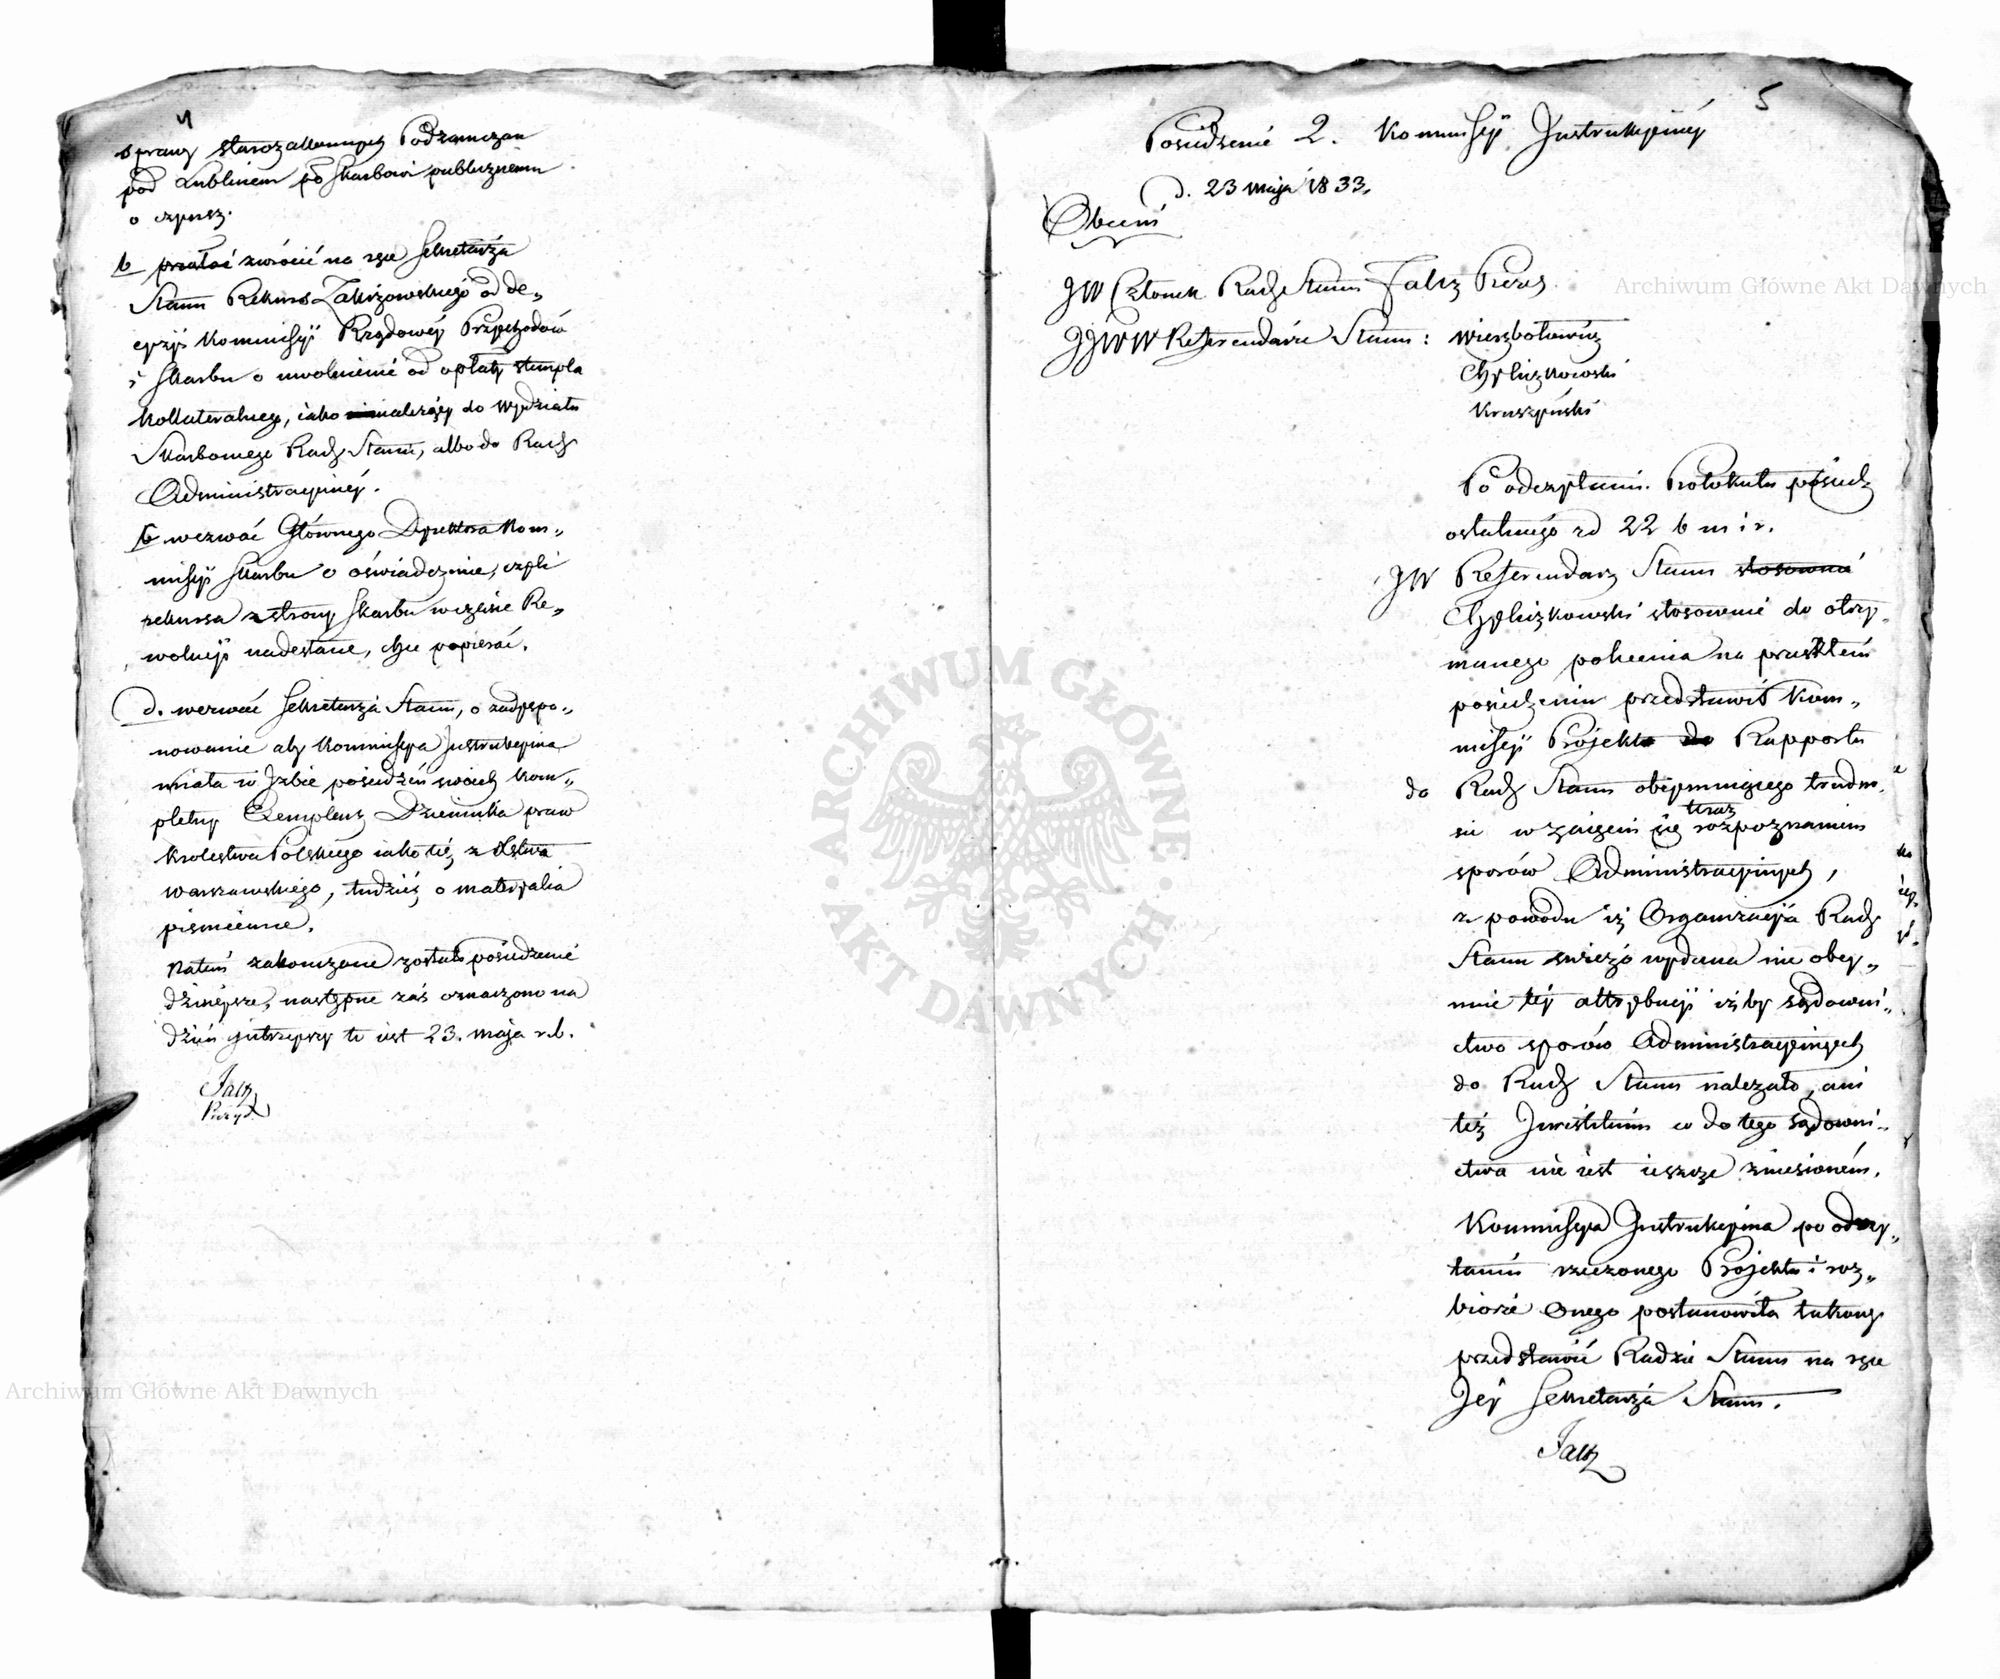 4
sprawy starozakonnych Podzamczan
pod Lublinem po Skarbowi publicznemu
o czynsz.
b przesłać zwrócić na ręce Sekretarza
Stanu Rekurs Zakrzowskiego od de„
cyzyi Kommissyi Rządowéy Przychodów
i Skarbu o uwolnienie od opłaty stempla
kollateralnego, iako należący do Wydziału
Skarbowego Rady Stanu, albo do Rady
Administracyinéy.
c wezwać Głównego Dyrektora Kom„
missyi Skarbu o oświadczenie, czyli
rekursa z strony Skarbu w czasie Re„
wolucyi nadesłane, chce popierać.
d. wezwać Sekretarza Stanu, o zadyspo„
nowanie aby Kommissya Instrukcyina
miała w Izbie posiedzeń swoich kom„
pletny Exemplarz Dziennika praw
Królestwa Polskiego iako też z Xstwa
Warszawskiego, tudzież o materyalia
piśmienne.
Natém zakończone zostało posiedzenie
dzisieysze, następne zaś oznaczono na
dzień jutrzeyszy to iest 23. maja r.b.
Faltz
Prezyd.
5
Posiedzenie 2. Kommissyi Instrukcyinéy
d. 23 maja 1833.
Obecni
JW Członek Rady Stanu Faltz Prezes
JJWW Referendarze Stanu: Wierzbołowicz
Chyliczkowski
Kruszyński
Po odczytaniu Protokułu posiedz
ostatniego z d 22 b m i r.
JW Referendarz Stanu stosownie
Chyliczkowski stosownie do otrzy„
manego polecenia na przeszłém
posiedzeniu przedstawił Kom„
missyi Projekt do Rapportu
do Rady Stanu obeymuiącego trudno„
sci w zaięciu się rozpoznaniem
teraz
sporów Administracyinych,
z powodu iż Organizacyia Rady
Stanu świeżo wydana nie obey„
muie téy attrybucyi iżby sądowni„
ctwo sporów Administracyinych
do Rady Stanu należało, ani
też Institutum co do tego sądowni„
ctwa nie iest ieszcze zniesioném.
Kommissya Instrukcyina po odczy„
taniu rzeczonego Projektu i roz„
biorze onego postanowiła takowy
przedstawić Radzie Stanu na ręce
Jéy Sekretarza Stanu.
Faltz
Archiwum Główne Akt Dawnych
Archiwum Główne Akt Dawnych
ARCHIWUM GŁÓWNE
· AKT DAWNYCH ·